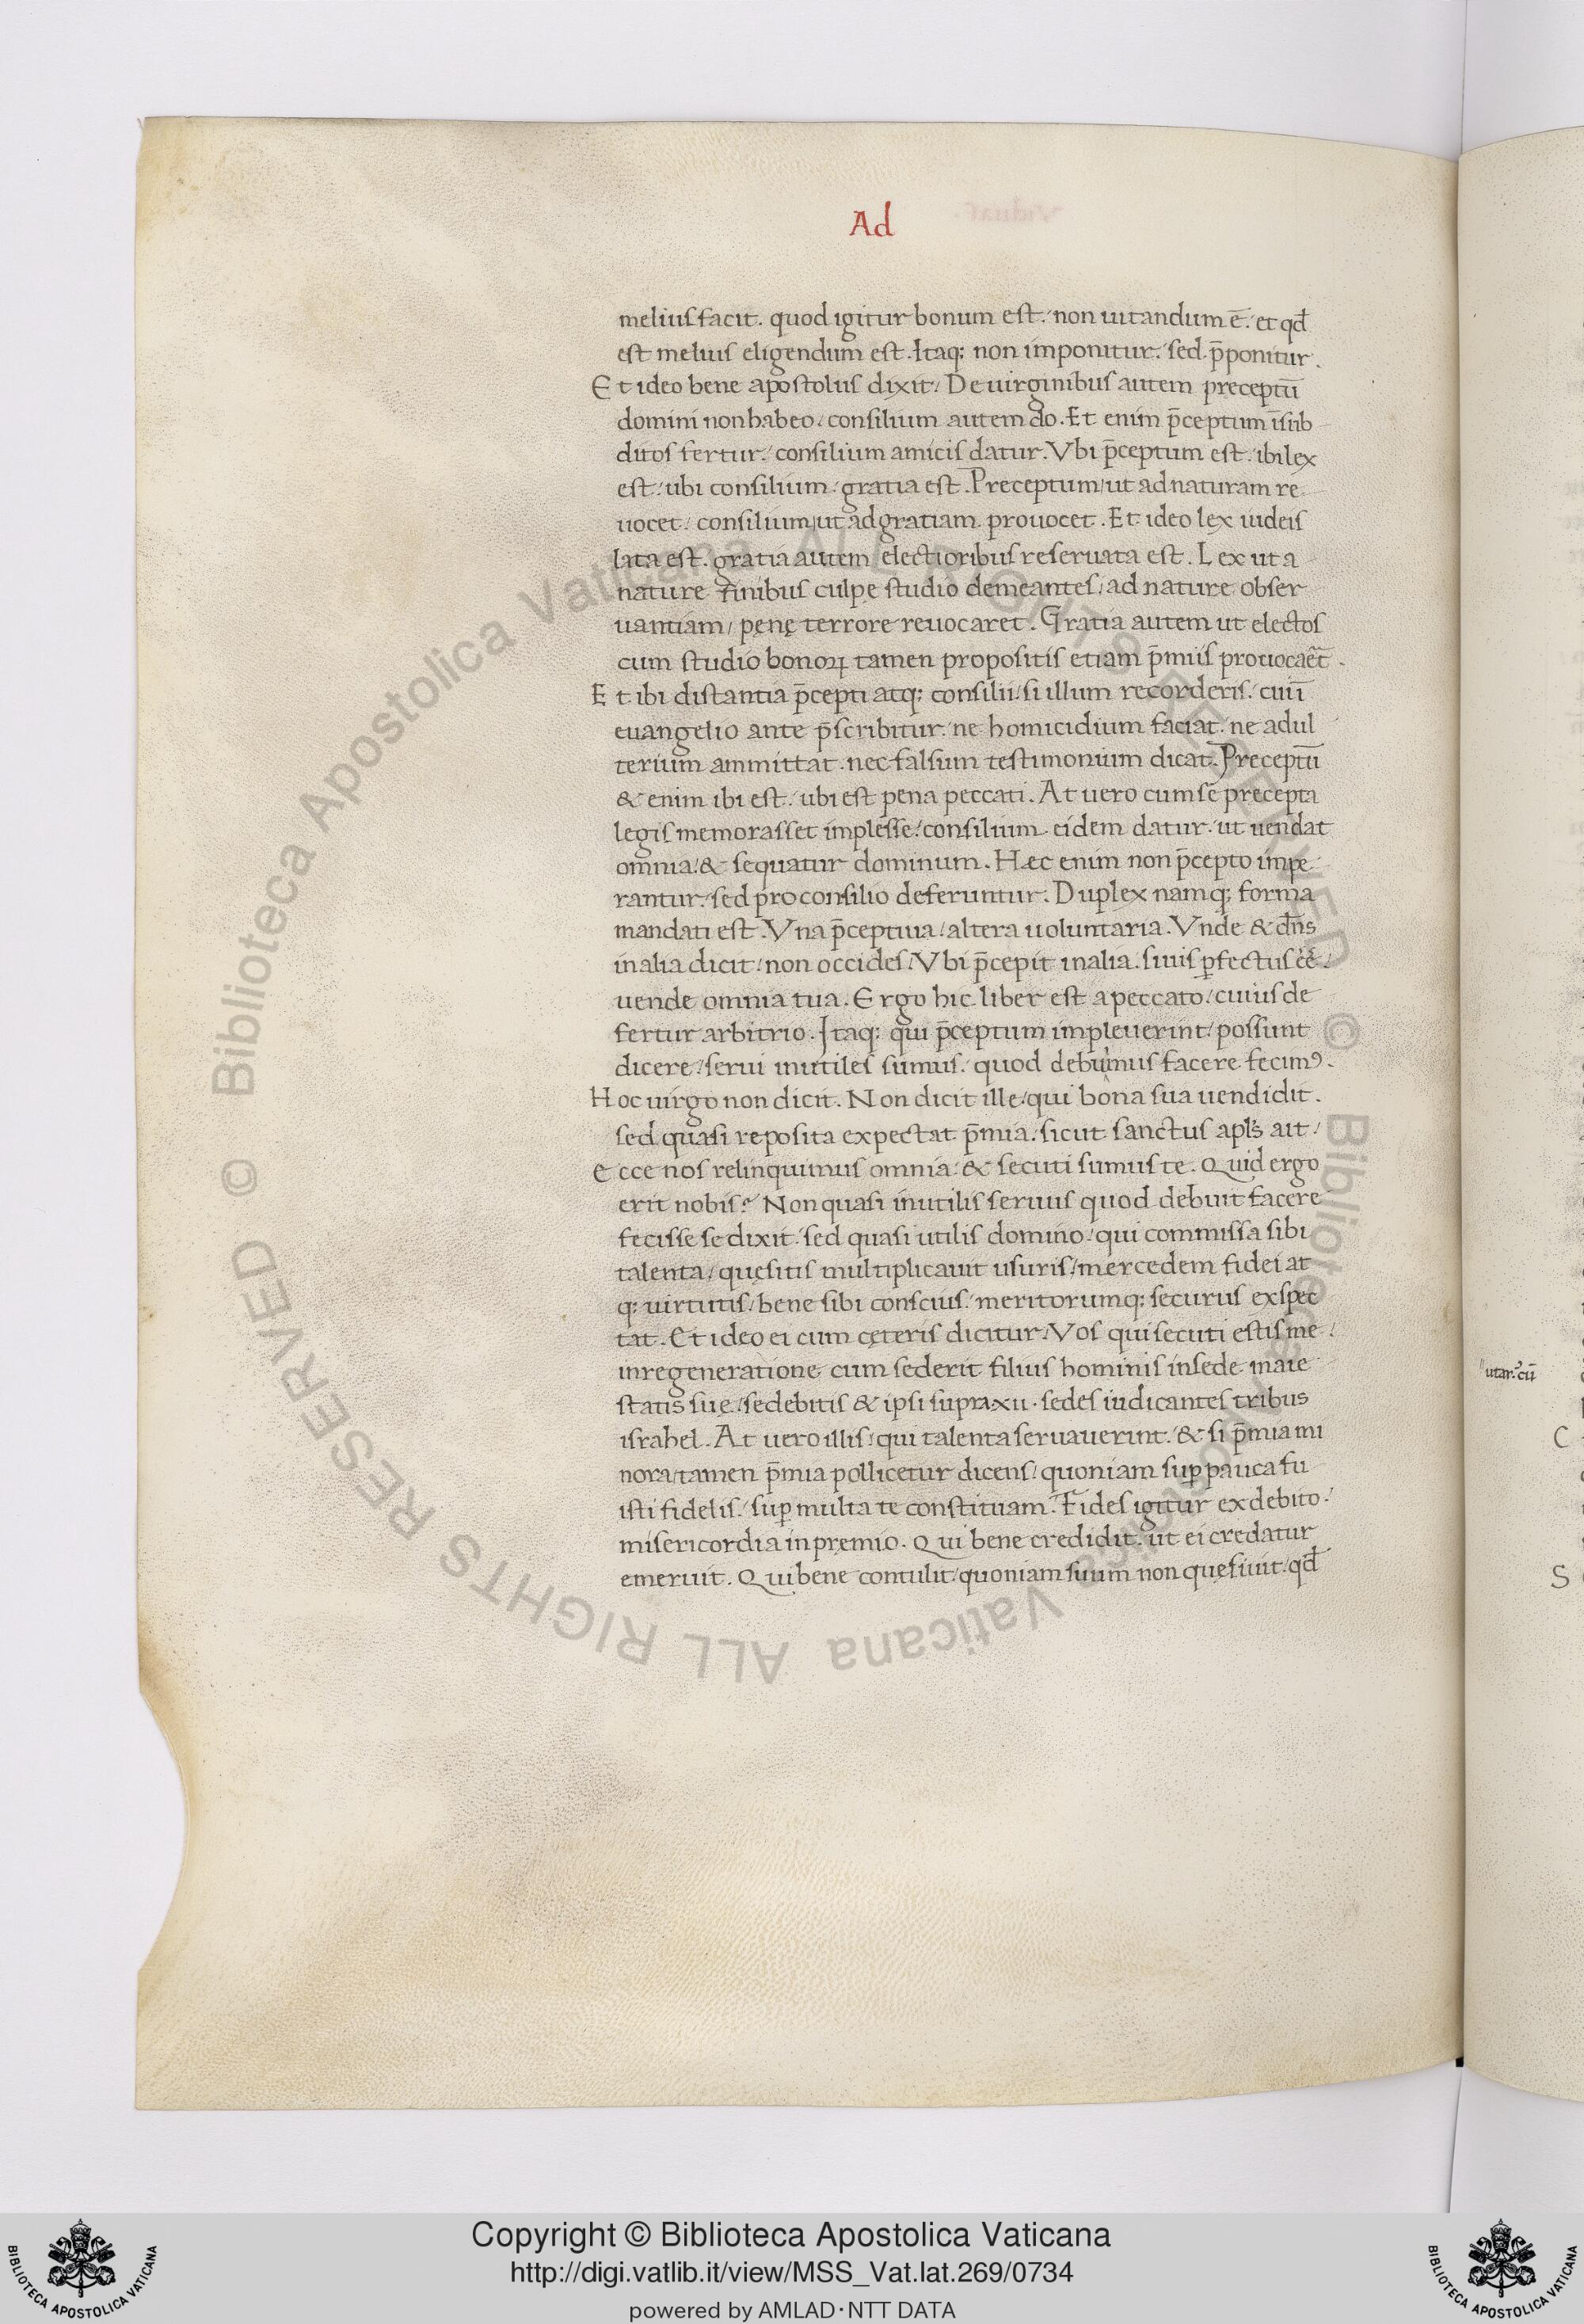 Ad
melius facit. quod igitur bonum est. non uitandum ē. et qđ
est melius eligendum est. Itaq; non imponitur. sed p̄ponitur.
Et ideo bene apostolus dixit. De uirginibus autem preceptū
domini non habeo. consilium autem do. Et enim p̄ceptum ī sub
ditos fertur. consilium amicis datur. Vbi p̄ceptum est. ibi lex
est. ubi consilium. gratia est. Preceptum ut ad naturam re
uocet. consilium ut ad gratiam prouocet. Et ideo lex iudeis
lata est. gratia autem electioribus reseruata est. Lex ut a
nature finibus culpę studio demeantes. ad nature obser
uantiam, pęnę terrore reuocaret. Gratia autem ut electos
cum studio bonoꝝ tamen propositis etiam p̄miis prouocaēt.
Et ibi distantia p̄cepti atq; consilii. si illum recorderis. cui ī
euangelio ante p̄scribitur. ne homicidium faciat. ne adul
terium ammittat. nec falsum testimonium dicat. Preceptū
& enim ibi est. ubi est pena peccati. At uero cum se precepta
legis memorasset implesse. consilium eidem datur. ut uendat
omnia. & sequatur dominum. Hæc enim non p̄cepto impe
rantur. sed pro consilio deferuntur. Duplex namq; forma
mandati est. Vna p̄ceptiua. altera uoluntaria. Vnde & dn̄s
in alia dicit. non occides. Vbi p̄cepit in alia. si uis ꝑfectus eē.
uende omnia tua. Ergo hic liber est a peccato. cuius de
fertur arbitrio. Itaq; qui p̄ceptum impleuerint. possunt
dicere. serui inutiles sumus. quod debuimus facere fecimꝰ.
Hoc uirgo non dicit. Non dicit ille. qui bona sua uendidit.
sed quasi reposita expectat p̄mia. sicut sanctus apl's ait.
Ecce nos relinquimus omnia. & secuti sumus te. Quid ergo
erit nobis? Non quasi inutilis seruus quod debuit facere
fecisse se dixit. sed quasi utilis domino. qui commissa sibi
talenta. quęsitis multiplicauit usuris. mercedem fidei at
q; uirtutis. bene sibi conscius. meritorumq; securus exspec
tat. Et ideo ei cum cęteris dicitur. Vos qui secuti estis me.
in regeneratione cum sederit filius hominis in sede maie
statis suę. sedebitis & ipsi supra xii. sedes iudicantes tribus
israhel. At uero illis. qui talenta seruauerint. & si p̄mia mi
nora tamen p̄mia pollicetur dicens. quoniam suꝑ pauca fu
isti fidelis. suꝑ multa te constituam. Fides igitur ex debito.
misericordia in pręmio. Qui bene credidit. ut ei credatur
emeruit. Qui bene contulit. quoniam suum non quęsiuit. qđ
utar? cū
C
S
© Biblioteca Apostolica Vaticana ALL RIGHTS RESERVED © Biblioteca Apostolica Vaticana ALL RIGHTS RESERVED
Copyright © Biblioteca Apostolica Vaticana
http://digi.vatlib.it/view/MSS_Vat.lat.269/0734
powered by AMLAD·NTT DATA
BIBLIOTECA APOSTOLICA VATICANA
BIBLIOTECA APOSTOLICA VATICANA